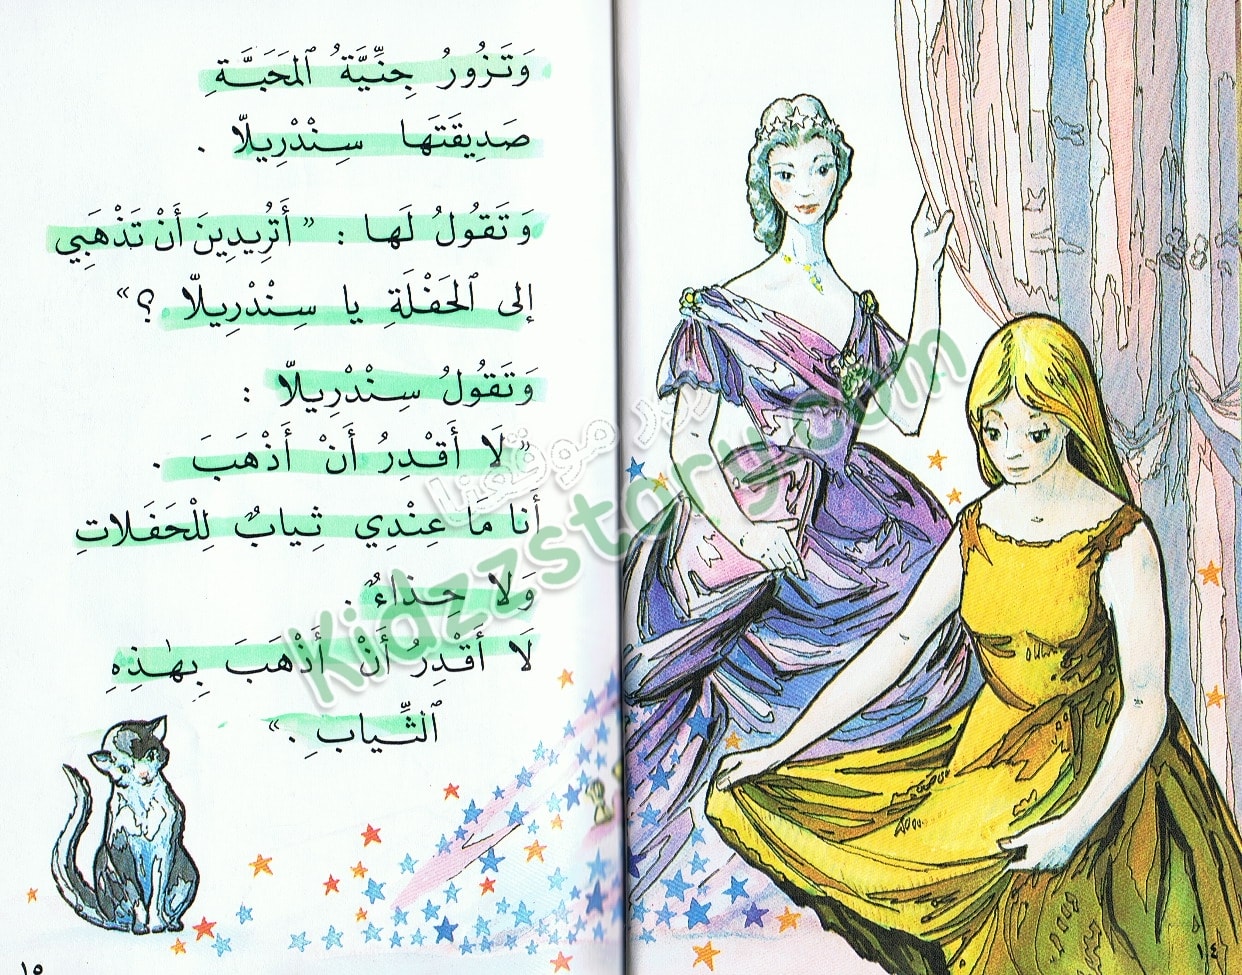 وَتَزُورُ جِنِّيَّةُ ٱلمَحَبَّةِ
صَدِيقَتَهَا سِنْدْرِيلّا .
وَتَقُولُ لَها : « أَتُرِيدِينَ أَنْ تَذْهَبِي
إلى ٱلحَفْلَةِ يا سِنْدْرِيلّا ؟ »
وَتَقُولُ سِنْدْرِيلّا :
« لَا أَقْدِرُ أَنْ أَذْهَبَ .
أَنا مَا عِنْدِي ثِيابٌ لِلْحَفَلاتِ
وَلا حِذاءٌ .
لَا أَقْدِرُ أَنْ أَذْهَبَ بِهٰذِهِ
ٱلثِّيابِ . »
١٥
١٤
زوروا موقعنا
kidzzstory.com